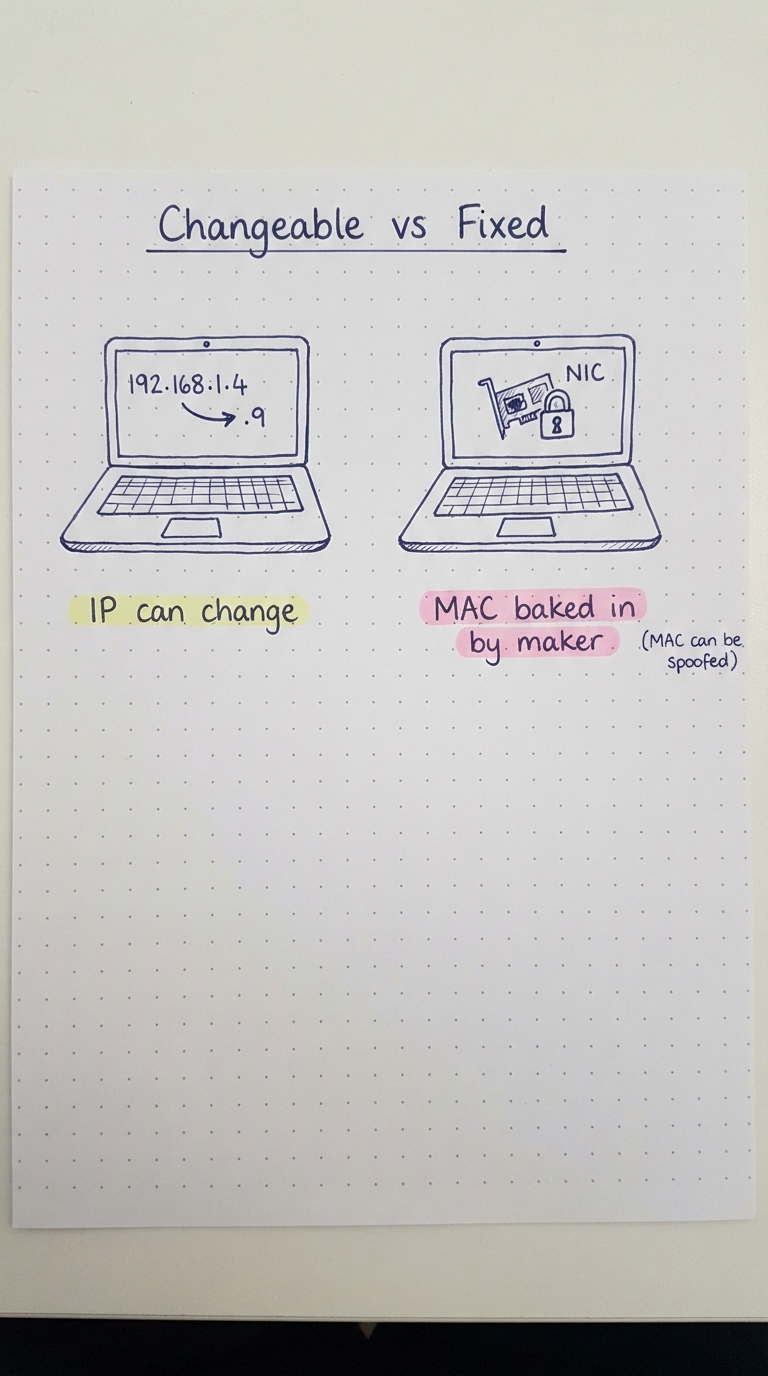 Changeable vs Fixed
192.168.1.4
.9
NIC
IP can change
MAC baked in
by maker
(MAC can be
spoofed)